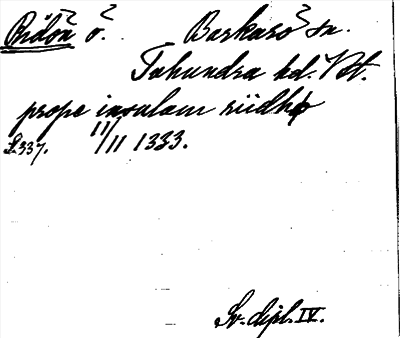 Ridön ö. Barkarö sn.
Tuhundra hd. Vstm.
prope insulam riidhø
S. 337. 11/11 1333.
Sv. dipl. IV.